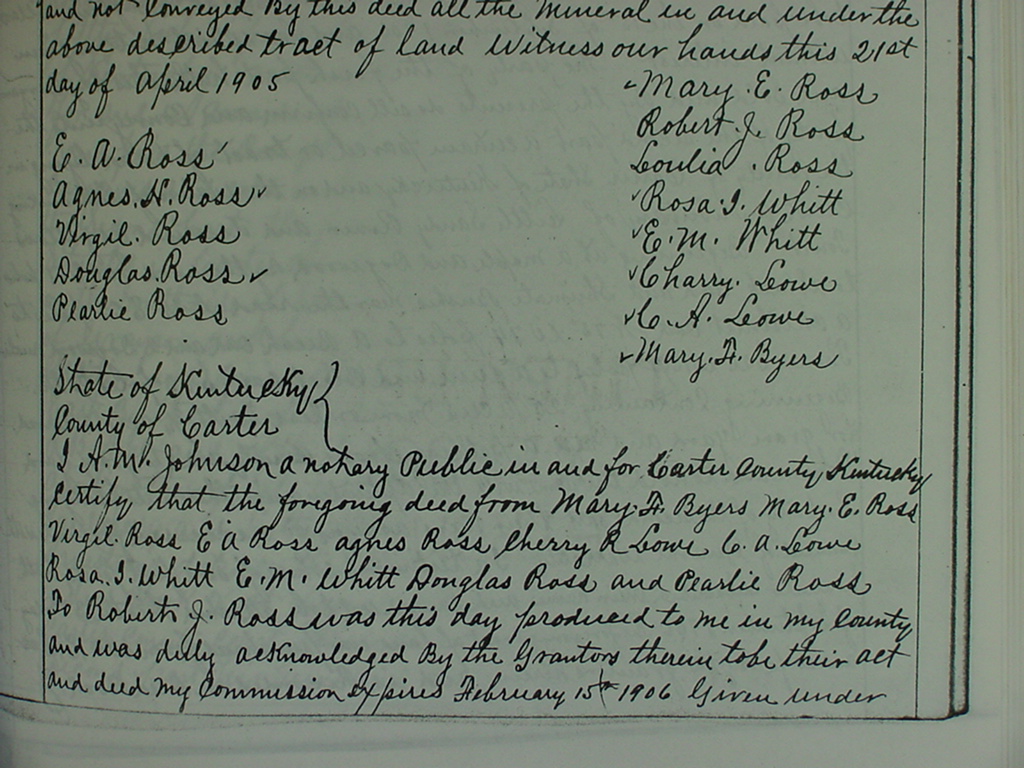 and not Conveyed By this deed all the Mineral in and under the
above described tract of land Witness our hands this 21st
day of April 1905
Mary. E. Ross
Robert. J. Ross
E. A. Ross
Loulia . Ross
Agnes. H. Ross
Rosa. I. Whitt
Virgil. Ross
E. M. Whitt
Douglas. Ross
Charry. Lowe
Pearlie Ross
C. A. Lowe
Mary. F. Byers
State of Kintucky
County of Carter
I A. M. Johnson a notary Public in and for Carter County Kintucky
Certify that the foregoing deed from Mary. F. Byers Mary. E. Ross
Virgil. Ross E A Ross agnes Ross Cherry R Lowe C. A. Lowe
Rosa. I. Whitt E. M. Whitt Douglas Ross and Pearlie Ross
To Robert. J. Ross was this day produced to me in my County
and was duly acknowledged By the Grantors therein tobe their act
and deed my Commission expires February 15th 1906 Given under